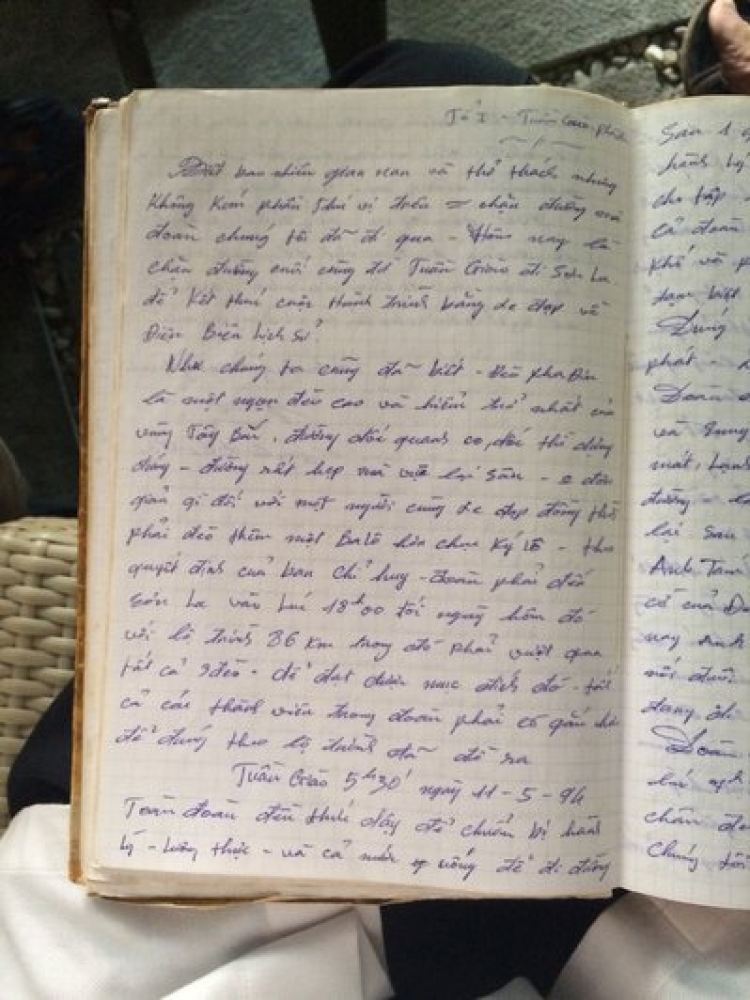 Tổ I - Tuần Giáo
bao nhiêu gian nan và thử thách nhưng
không kém phần thú vị trên chặn đường mà
đoàn chúng tôi đã đi qua - Hôm nay là
chặn đường cuối cùng từ Tuần Giáo đi Sơn La
để kết thúc cuộc hành trình bằng xe đạp về
Điện Biên lịch sử
Như chúng ta cũng đã biết - Đèo Pha Đin
là một ngọn đèo cao và hiểm trở nhất của
vùng Tây Bắc, đường dốc quanh co, dốc thì dựng
đứng - đường rất hẹp mà vực lại sâu -
gì đối với một người cùng xe đạp đồng thời
phải đèo thêm một Ba lô hơn chục ký lô - theo
quyết định của ban chỉ huy - đoàn phải đến
Sơn La vào lúc 18h00 tối ngày hôm đó
với lộ trình 86 km trong đó phải vượt qua
tất cả 3 đèo - để đạt được mục đích đó - tất
cả các thành viên trong đoàn phải cố gắn
để đúng theo lộ trình đã đề ra
Tuần Giáo 5h30' ngày 11-5-94
Toàn đoàn đều thức dậy để chuẩn bị hành
lý - lương thực - và cả nước uống để đi đường
Sau 1
hành lý
cho tập
cả đoàn
khổ và
tạm biệt
Đúng
phát
Đoàn
và
mát, lạnh
đường
lại sau
Anh
cố của
nay Anh
nối đuôi
đang đi
Đoàn
lúc
chân đ
chúng tôi